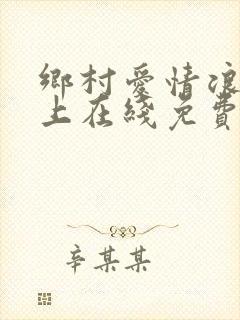 鄉村愛情浪
上在綫免費
辛某某